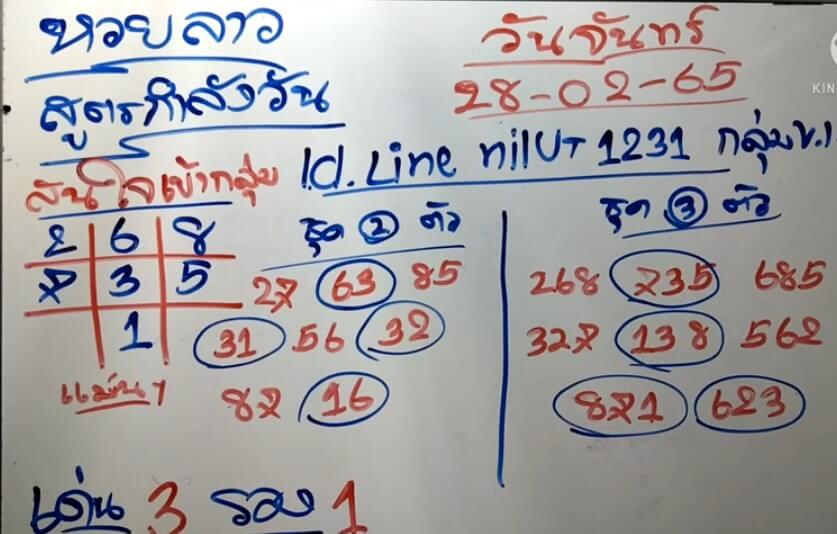 หวยลาว
วันจันทร์
28-02-65
สูตรกำลังวัน
สนใจเข้ากลุ่ม Id.Line nilUT 1231 กลุ่มV.1
2 6 8
7 3 5
1
แม่นๆ
ชุด 2 ตัว
27 63 85
31 56 32
87 16
ชุด 3 ตัว
268 735 685
327 138 562
871 623
เด่น 3 รอง 1
KIN